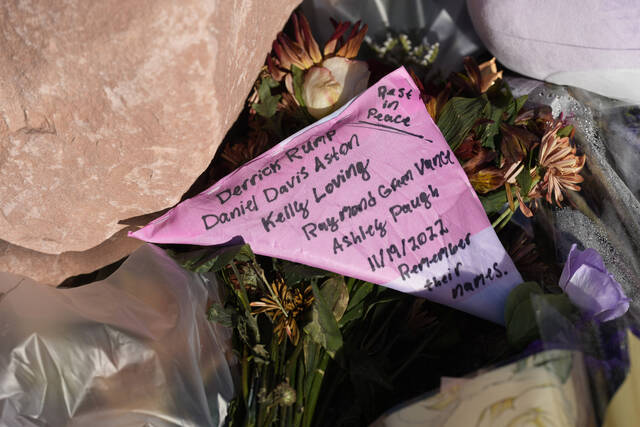 Rest
in
Peace
Derrick Rump
Daniel Davis Aston
Kelly Loving
Raymond Green Vance
Ashley Paugh
11/19/2022
Remember
their
names.